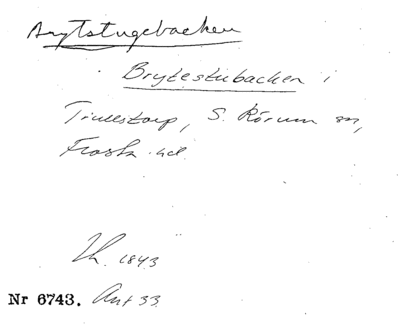 Brytstugebacken
Brytestubacken i
Trulstorp, S. Rörum sn,
Frosta hd.
Th. 1843
Nr 6743. Ant 33